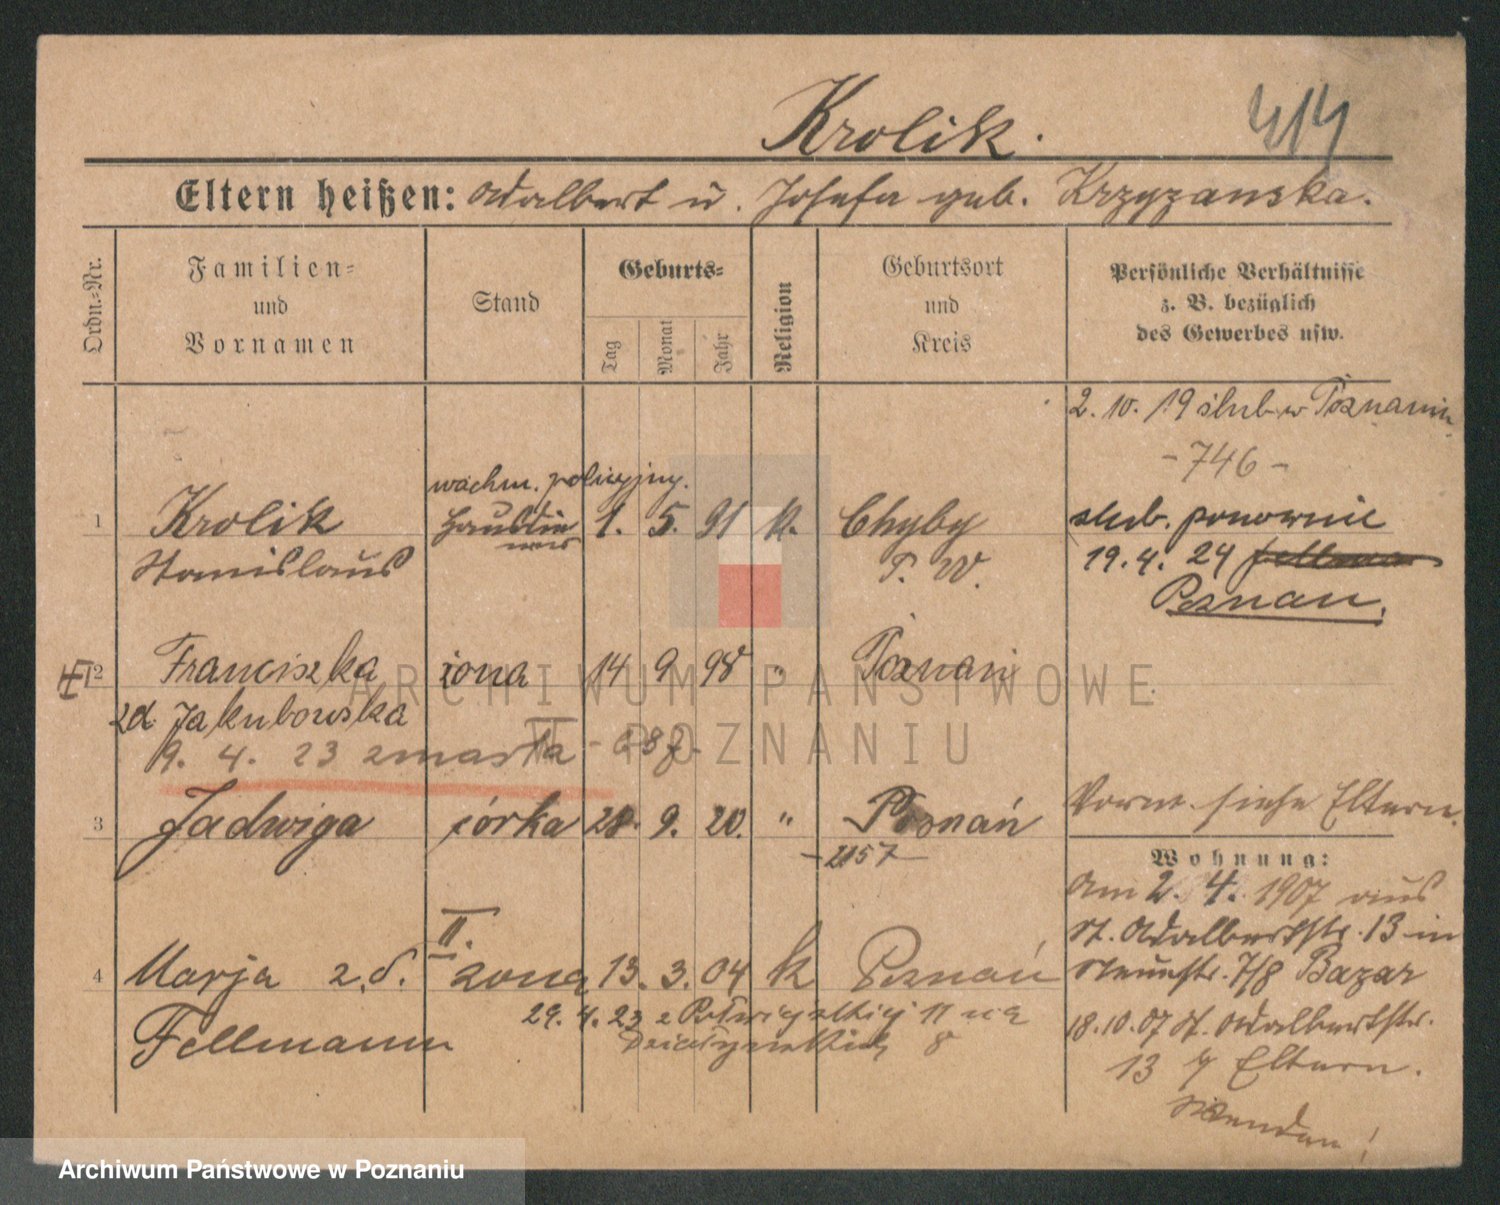 Krolik.
414
Eltern heißen: Adalbert u. Josefa geb. Krzyzanska.
Ordn.-Nr.
Familien-
und
Vornamen
Stand
Geburts-
Tag
Monat
Jahr
Religion
Geburtsort
und
Kreis
Persönliche Verhältnisse
z. B. bezüglich
des Gewerbes usw.
2. 10. 19 ślub w Poznaniu
- 746 -
wachm. policyjny.
1 Krolik 1. 5. 91 k. Chyby
Stanislaus P. W.
ślub. ponownie
19. 4. 24 Fellmann
Poznan.
2 Franciszka żona 14 9 98 " Poznań
zd. Jakubowska
9. 4. 23 zmarła
3 Jadwiga córka 28. 9. 20. " Poznań
- 2157 -
Vorm. siehe Eltern.
Wohnung:
Am 2. 4. 1907 aus
St. Adalbertstr. 13 in
Neuestr. 7/8 Bazar
18.10.07 St. Adalbertstr.
13 Eltern.
II.
4 Marja z. d. zona 13. 3. 04 k Poznań
Fellmann
29. 4. 23 z 11 na
Działyńskich 8
ARCHIWUM PAŃSTWOWE
W POZNANIU
Archiwum Państwowe w Poznaniu